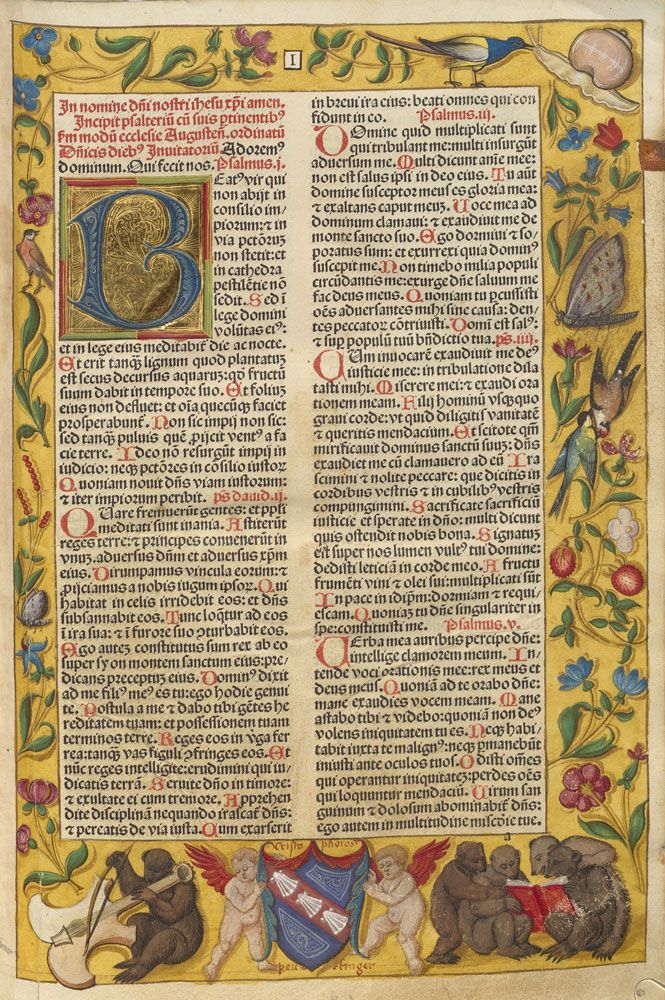 I
In nomine dñi nostri ihesu xp̃i amen.
Incipit psalteriũ cũ suis ꝑtinentibꝰ
ẜm modũ ecclesie Augusteñ. ordinatũ
Dñicis diebꝰ Inuitatoriũ Adoremꝰ
dominum. Qui fecit nos. Psalmus.j.
Beatꝰ vir qui
non abijt in
consilio im/
piorum: ⁊ in
via pctõrum
non stetit: et
in cathedra
pestilẽtie nõ
sedit. Sed ĩ
lege domini
volũtas eiꝰ:
et in lege eius meditabit̃ die ac nocte.
Et erit tanq̃ȝ lignum quod plantatuȝ
est secus decursus aquarum: qð fructũ
suum dabit in tempore suo. Et foliuȝ
eius non defluet: et oĩa quecũqȝ faciet
prosperabunt̃. Non sic impij non sic:
sed tanq̃ȝ puluis quẽ ꝓijcit ventꝰ a fa
cie terre. Ideo nõ resurgũt impij in
iudicio: neqȝ pctõres in cõsilio iustoꝝ
Quoniam nouit dñs viam iustorum:
⁊ iter impiorum peribit. ps̃ dauid.ij.
Quare fremuerũt gentes: et ppl̃i
meditati sunt inania. Astiterũt
reges terre: ⁊ principes conuenerũt in
vnuȝ. aduersus dñm et aduersus xpm̃
eius. Dirumpamus vincula eorum: et
ꝓijciamus a nobis iugum ipsoꝝ. Qui
habitat in celis irridebit eos: et dñs
subsannabit eos. Tunc loq̃tur ad eos
ĩ ira sua: ⁊ ĩ furore suo ꝯturbabit eos.
Ego autẽ constitutus sum rex ab eo
super syon montem sanctum eius: pre/
dicans preceptuȝ eius. Dominꝰ dixit
ad me filiꝰ meꝰ es tu: ego hodie genui
te. Postula a me ⁊ dabo tibi gẽtes he
reditatem tuam: et possessionem tuam
terminos terre. Reges eos in v̓ga fer
rea: tanq̃ȝ vas figuli ꝯfringes eos. Et
nũc reges intelligite: erudimini qui iu/
dicatis terrã. Seruite dño in timore:
⁊ exultate ei cum tremore. Apprehen
dite disciplinaȝ nequando irascat̃ dñs:
⁊ pereatis de via iusta. Cum exarserit
in breui ira eius: beati omnes qui con
fidunt in eo. Psalmus.iij.
Domine quid multiplicati sunt
qui tribulant me: multi insurgũt
aduersum me. Multi dicunt anĩe mee:
non est salus ipsi in deo eius. Tu aũt
domine susceptor meus es gloria mea:
⁊ exaltans caput meuȝ. Uoce mea ad
dominum clamaui: ⁊ exaudiuit me de
monte sancto suo. Ego dormiui ⁊ so/
poratus sum: et exurrexi quia dominꝰ
suscepit me. Non timebo milia populi
circũdantis me: exurge dñe saluum me
fac deus meus. Quoniam tu ꝑcussisti
oẽs aduersantes mihi sine causa: den/
tes peccatoꝝ cõtriuisti. Domĩ est salꝰ:
⁊ suꝑ populũ tuũ bñdictio tua. ps̃.iiij.
Cum inuocarem exaudiuit me deꝰ
iusticie mee: in tribulatione dila
tasti mihi. Miserere mei: ⁊ exaudi ora
tionem meam. Filij hominũ vsqȝquo
graui corde: vt quid diligitis vanitatẽ
⁊ queritis mendacium. Et scitote qm̃
mirificauit dominus sanctũ suuȝ: dñs
exaudiet me cũ clamauero ad eũ Ira
scimini ⁊ nolite peccare: que dicitis in
cordibus vestris ⁊ in cubilibꝰ vestris
compungimini. Sacrificate sacrificiũ
iusticie et sperate in dño: multi dicunt
quis ostendit nobis bona. Signatuȝ
est super nos lumen vultꝰ tui domine:
dedisti leticiã in corde meo. A fructu
frumẽti vini ⁊ olei sui: multiplicati sũt
In pace in idip̃m: dormiam ⁊ requi/
escam. Quoniaȝ tu dñe singulariter in
spe: constituisti me. Psalmus.v.
Uerba mea auribus percipe dñe:
intellige clamorem meum. In/
tende voci orõnis mee: rex meus et
deus meus. Quoniã ad te orabo dñe:
mane exaudies vocem meam. Mane
astabo tibi ⁊ videbo: quoniã non deꝰ
volens iniquitatem tu es. Neqȝ habi/
tabit iuxta te malignꝰ: neqȝ ꝑmanebũt
iniusti ante oculos tuos. Odisti oẽs
qui operantur iniquitatẽ: perdes oẽs
qui loquuntur mendaciũ. Uirum san/
guinum ⁊ dolosum abominabit̃ dñs:
ego autem in multitudine misc̃die tue.
a
Cristo phoros